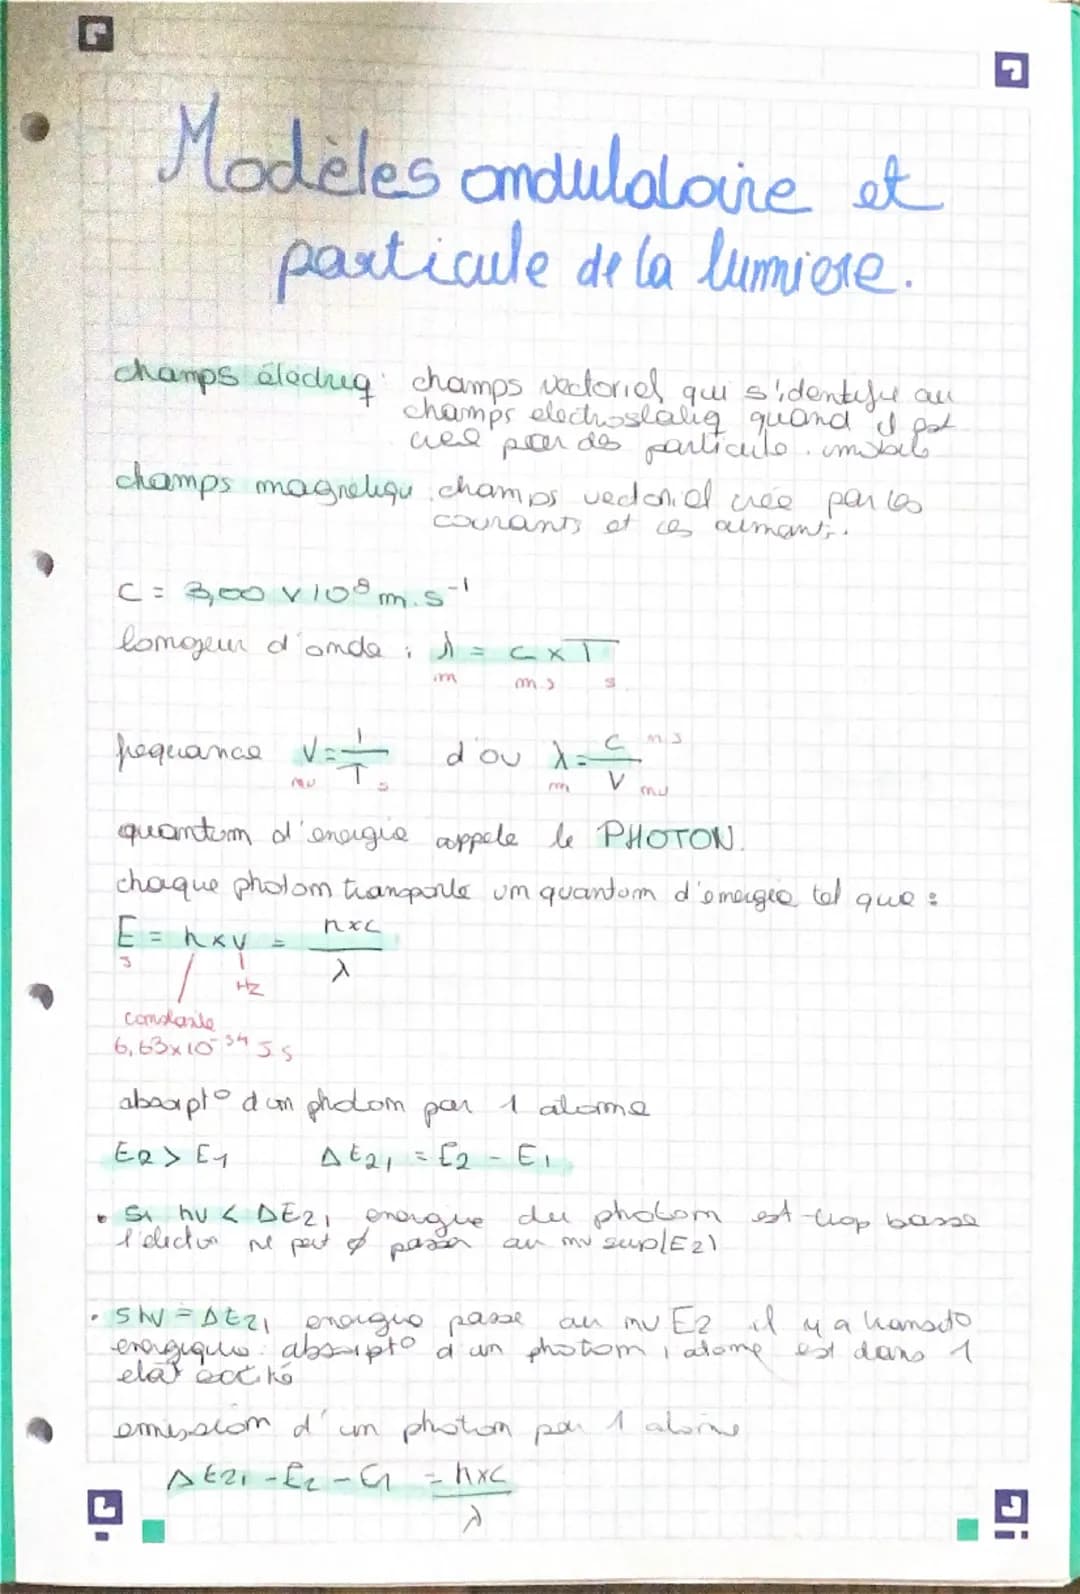 Modèles ondulatoire et
particule de la lumiere.
champs électriq: champs vectoriel qui s'identifie au
champs electrostatiq quand il est
créé par des particule immobile
champs magnetiqu champs vectoriel crée par les
courants et les aimants.
C = 3,00 x 10⁸ m.s⁻¹
longeur d'onde : λ = c x T
m m.s s
frequence ν = 1/T d'ou λ = c/ν
nu s m m.s nu
quantum d'energie appele le PHOTON.
chaque photon transporte un quantum d'energie tel que :
E = h x ν = h x c / λ
J Hz
constante
6,63 x 10⁻³⁴ J s
absorpt° d'un photon par 1 atome
E2 > E1 ΔE21 = E2 - E1
• Si hν < ΔE21 energie du photon est trop basse
l'electron ne peut ∅ passer au nv sup (E2)
• Si hν = ΔE21 energie passe au nv E2 il y a transit°
energique: absorpt° d'un photon, atome est dans 1
etat excité
emission d'un photon par 1 atome
ΔE21 - E2 - E1 = h x c / λ